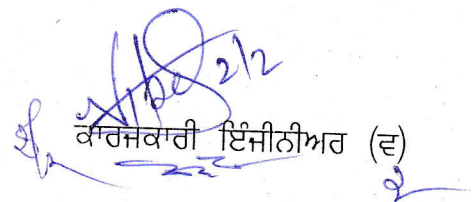 2/2
ਕਾਰਜਕਾਰੀ ਇੰਜੀਨੀਅਰ (ਵ)